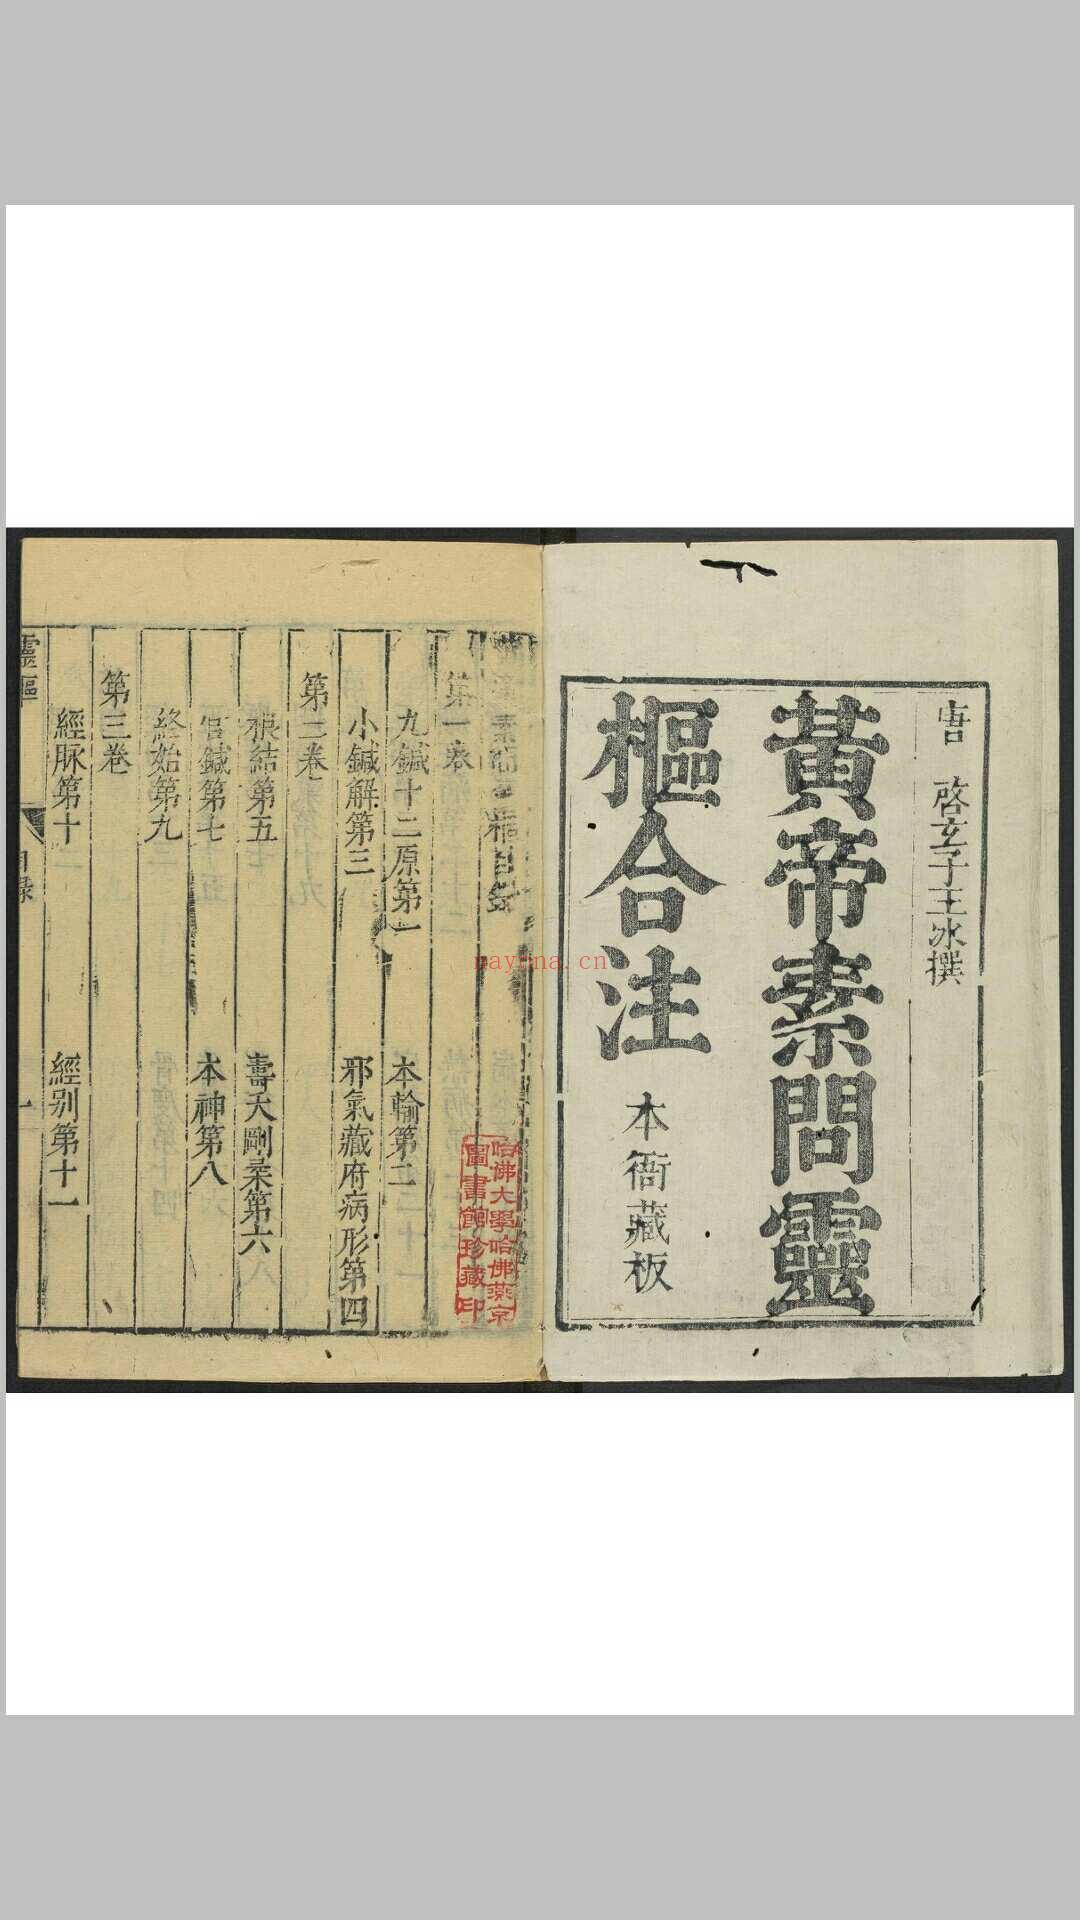 唐 啓玄子王冰撰
黃帝素問靈
樞合注
本衙藏板
第一卷
九鍼十二原第一 本輸第二
小鍼解第三 邪氣藏府病形第四
第二卷
根結第五 壽夭剛柔第六
官鍼第七 本神第八
終始第九
第三卷
經脉第十 經別第十一
靈樞 目錄 一
哈佛大學哈佛燕京
圖書館珍藏印
nayona.cn